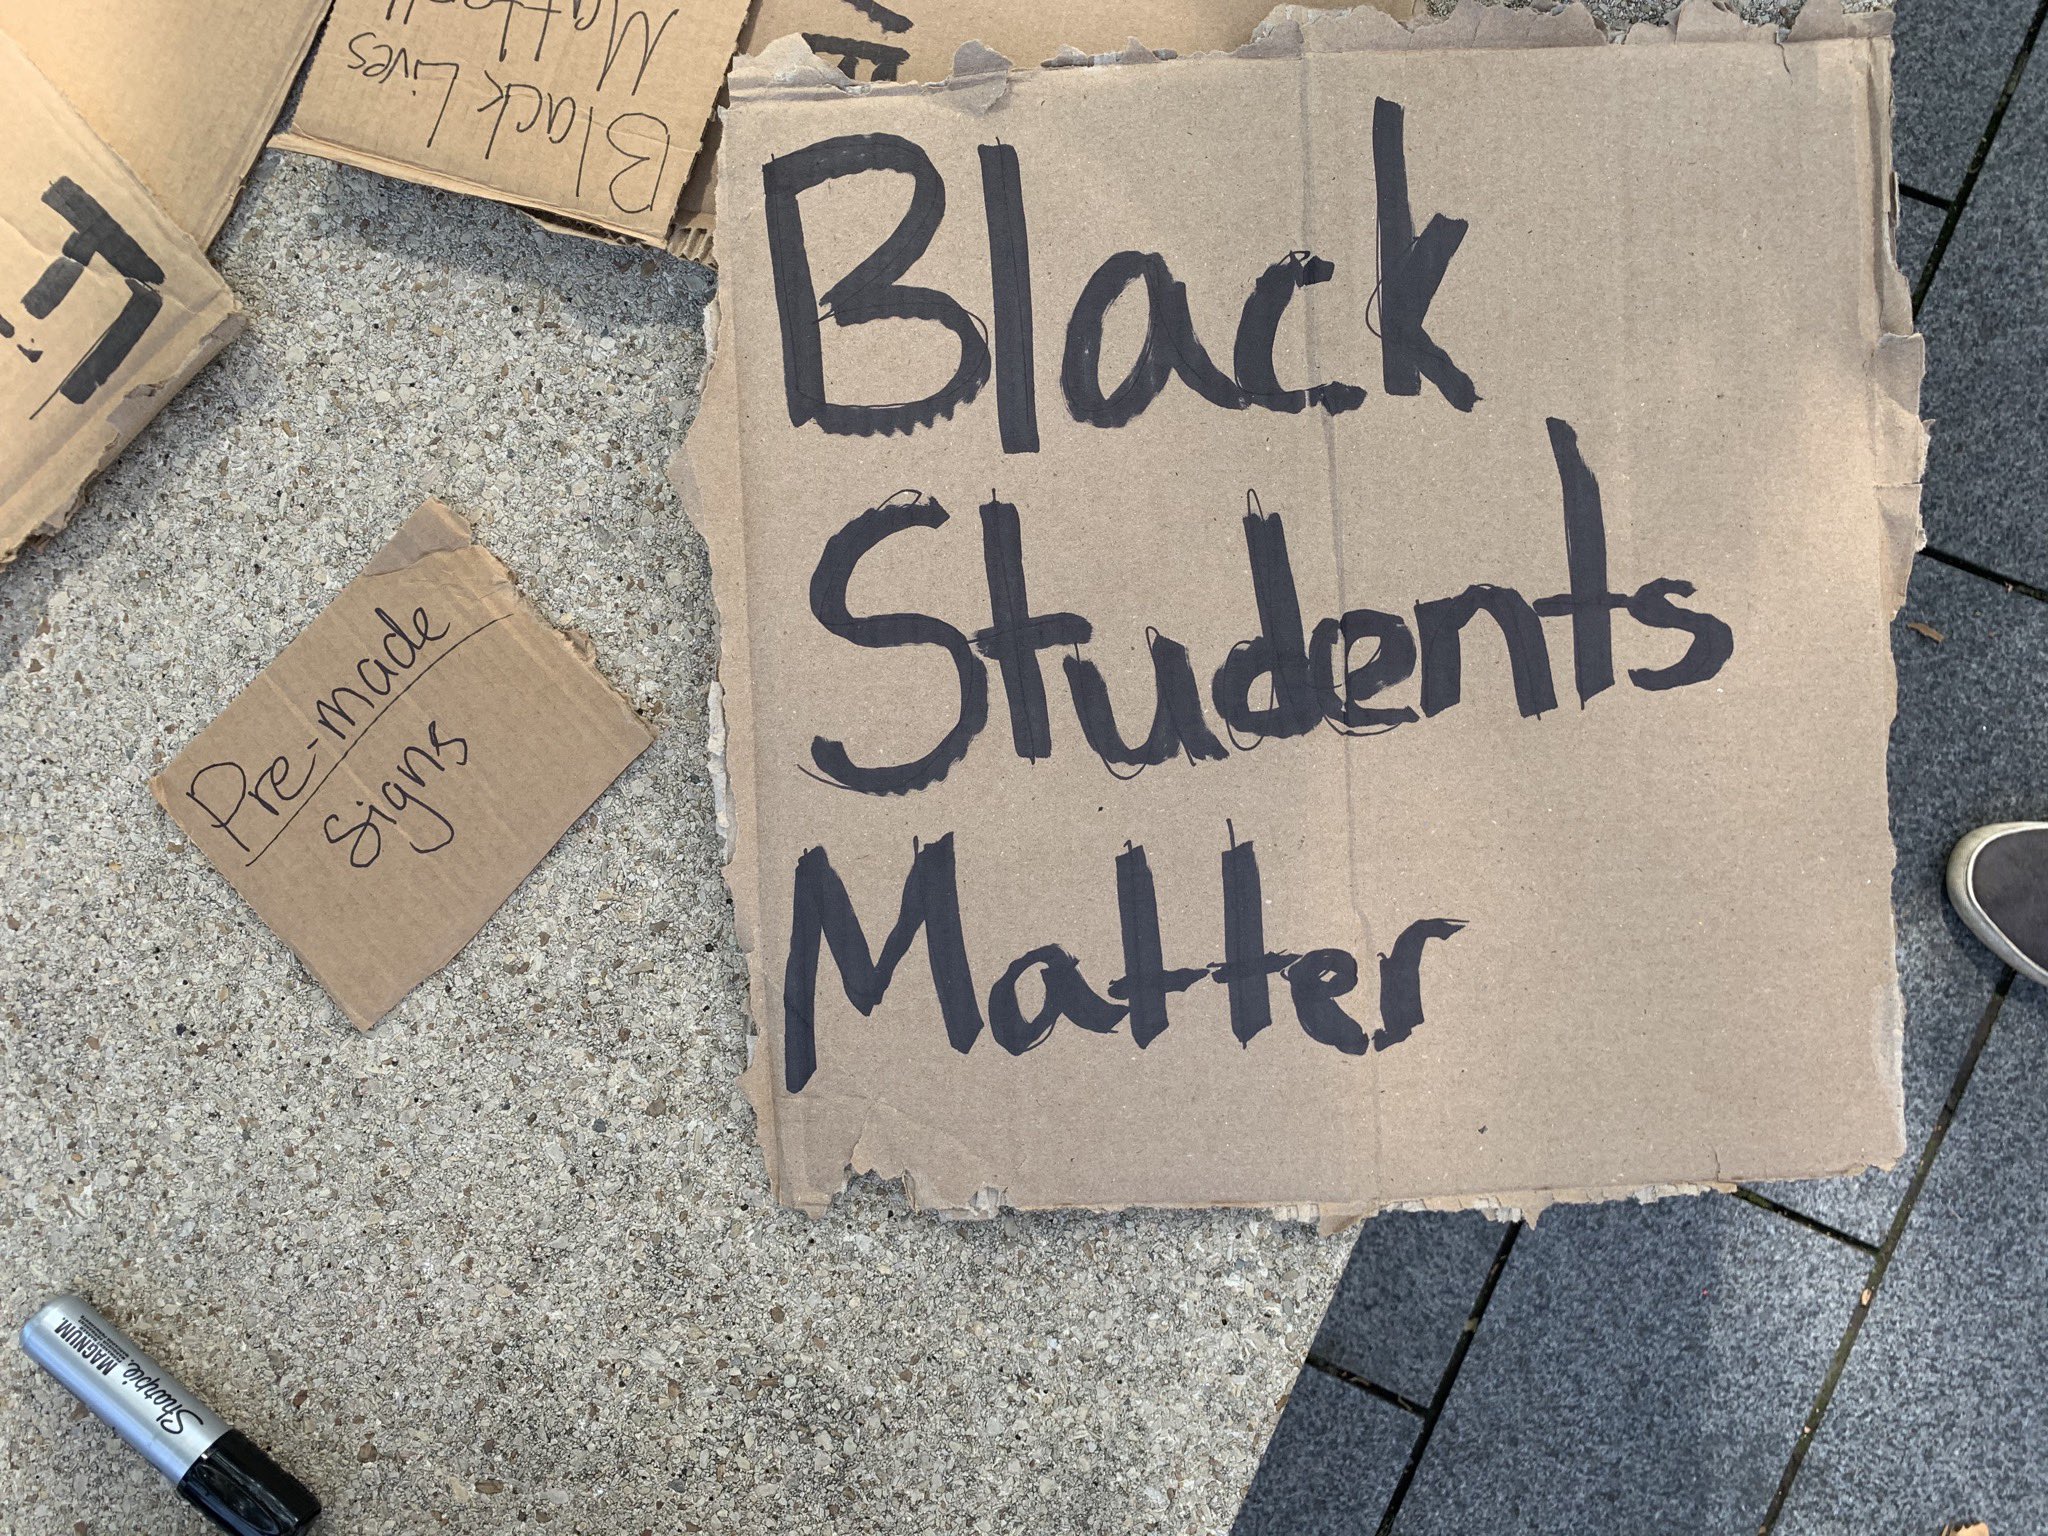 Black Lives
Black
Students
Matter
Pre-made
Signs
Sharpie
MAGNUM